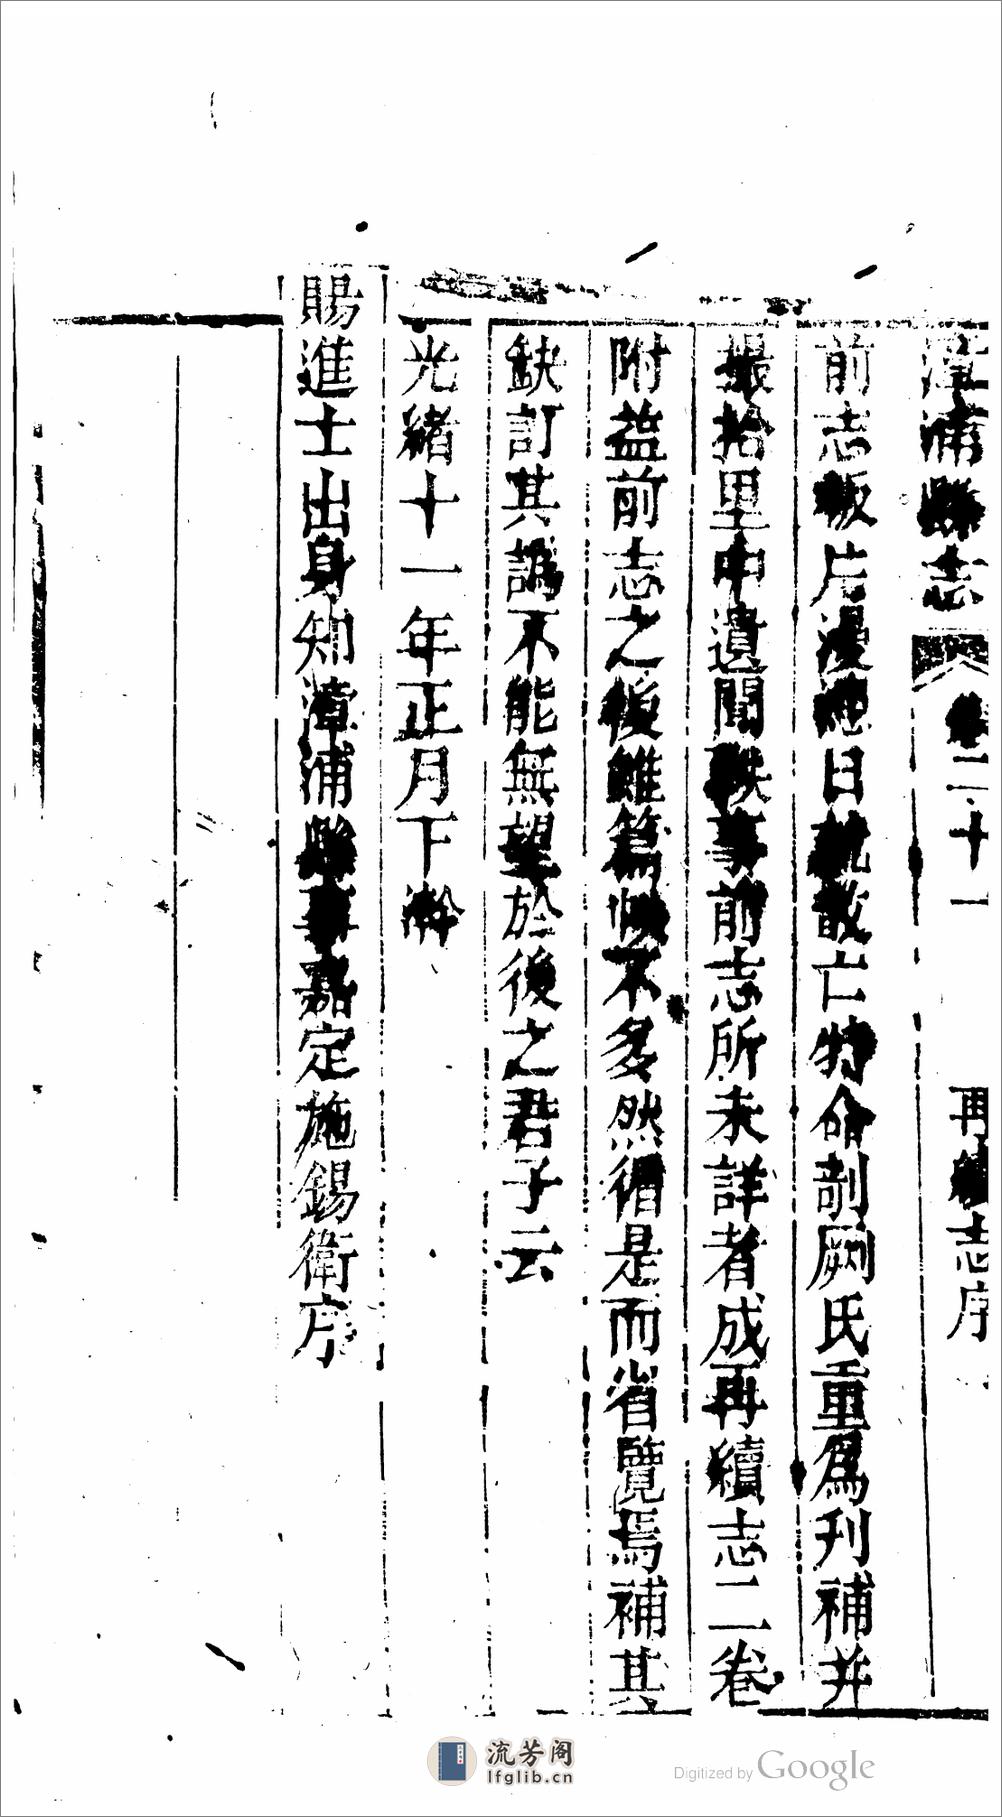 漳浦縣志 卷二十一 再續志序
前志板片漫漶日就散亡特命剞劂氏重爲刊補并
掇拾里中遺聞軼事前志所未詳者成再續志二卷
附益前志之後雖篇帙不多然循是而省覽焉補其
缺訂其譌不能無望於後之君子云
光緒十一年正月下澣
賜進士出身知漳浦縣事嘉定施錫衛序
流芳阁
lfglib.cn
Digitized by Google